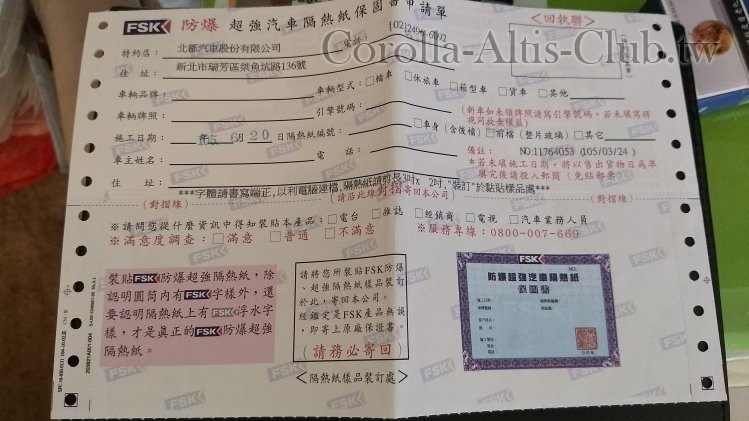 FSK 防爆 超強汽車隔熱紙保固書申請單
<回執聯>
Corolla-Altis-Club.tw
特約店： 北都汽車股份有限公司 電話：
住 址： 新北市瑞芳區傑魚坑路136號
車輛品牌： 車輛型式：□轎車 □休旅車 □箱型車 □貨車 □其他
車輛牌照： 引擎號碼： (新車如未領牌照請寫引擎號碼，若未填寫將
視同放棄權益)
施工日期： 105年 6月 20日 隔熱紙編號： □車身(含後檔) □前檔(整片玻璃) □其它
車主姓名： 電 話： 備註： NO:11764053 (105/03/24)
＊若未填施工日期，將以售出貨物日為準
住 址： 填完後請投入郵筒(免貼郵票)
***字體請書寫端正,以利電腦建檔,隔熱紙請剪長3吋x 2吋,"裝訂"於黏貼樣品處***
(對摺線) (請沿此線對摺寄回本公司) (對摺線)
※請問您從什麼資訊中得知裝貼本產品：□電台 □雜誌 □經銷商 □電視 □汽車業務人員
※滿意度調查：□滿意 □普通 □不滿意 ※服務專線：0800-007-669
裝貼FSK防爆超強隔熱紙，除
認明圓筒內有FSK字樣外，還
要認明隔熱紙上有FSK浮水字
樣，才是真正的FSK防爆超強
隔熱紙。
請將您所裝貼FSK防爆
、超強隔熱紙樣品裝訂
於此，寄回本公司。
經鑑定是FSK產品無誤
，即寄上原廠保證書。
(請務必寄回)
<隔熱紙樣品裝訂處>
FSK
NO:
防爆超強汽車隔熱紙
保固書